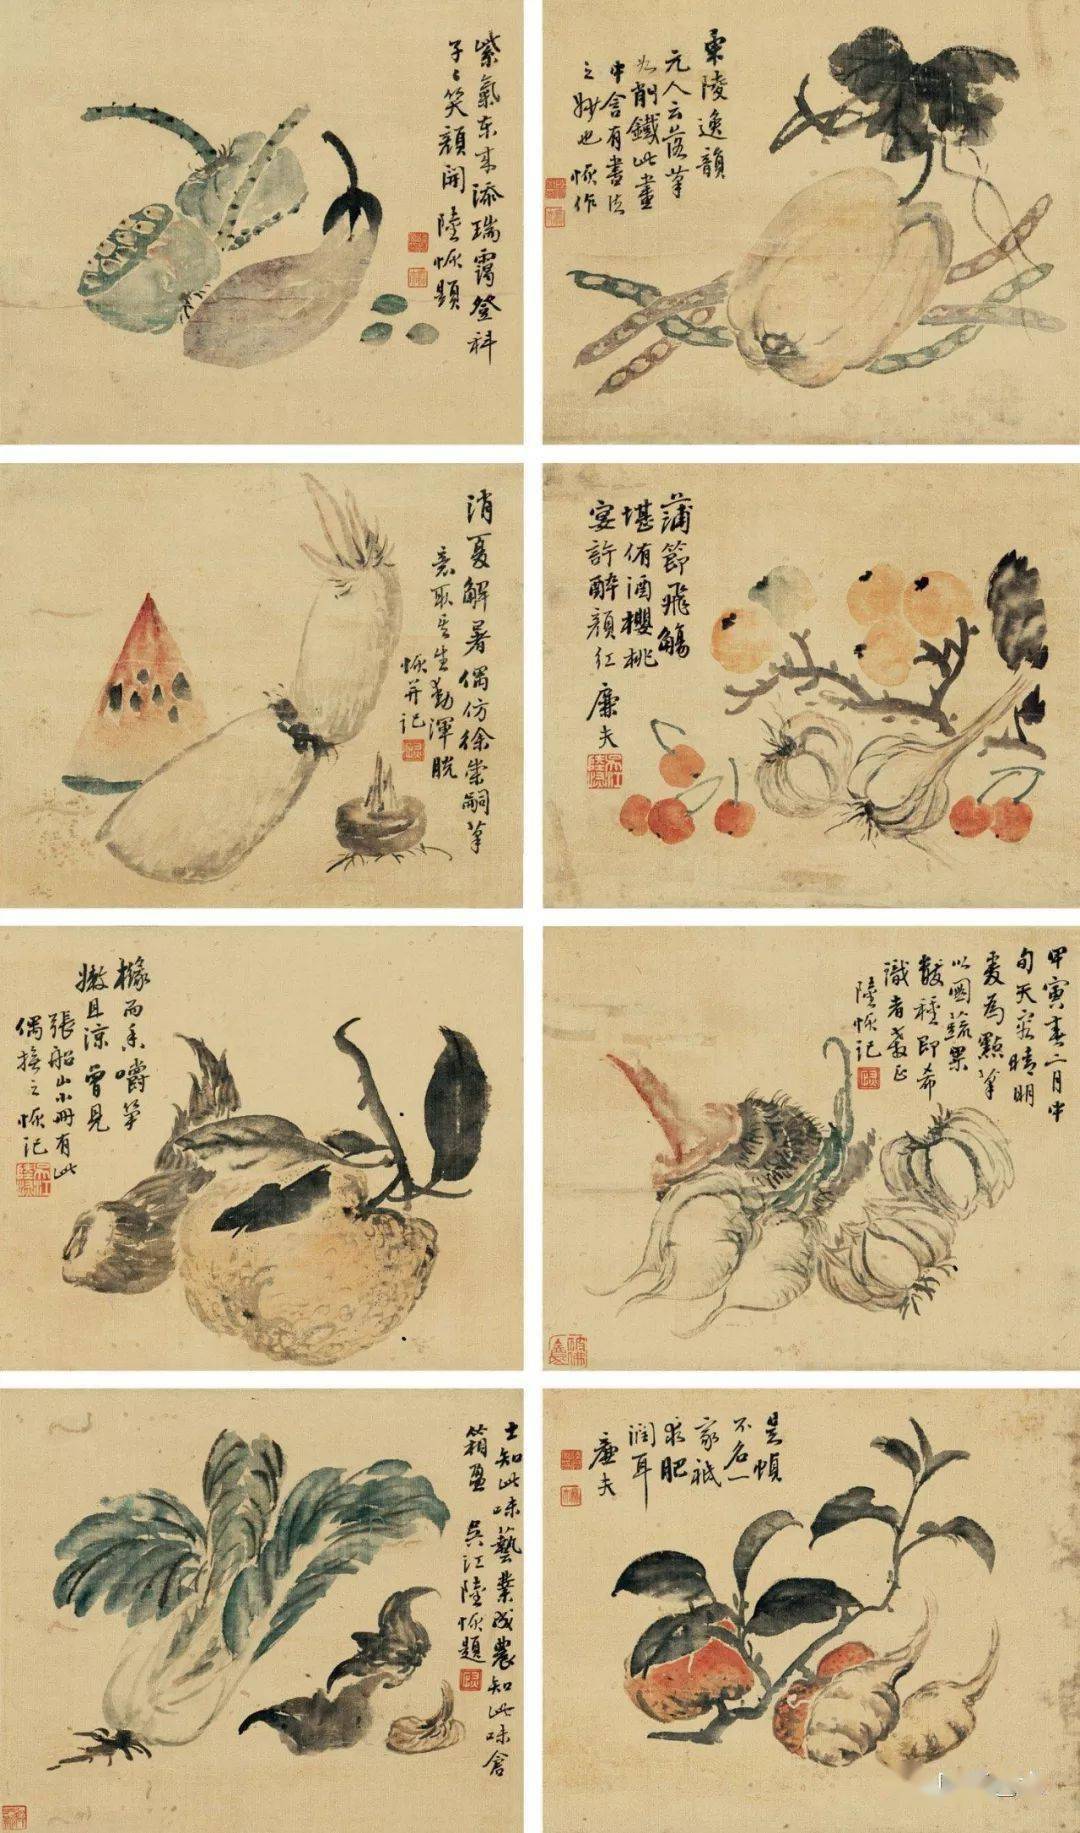 紫氣東來添瑞靄登科
子子笑顏開
陸恢題
東陵逸韻
元人云落筆
如削鐵此畫
中含有書法
之妙也恢作
消夏解暑偶仿徐崇嗣筆
意取其生動渾脫
恢并記
蒲節飛觴
堪侑酒櫻桃
宴許醉顏紅
廉夫
櫞而香嚼筍
嫩且涼曾見
張船山小冊有此
偶橅之恢記
甲寅春二月中
旬天氣晴明
爰為點筆
以圖蔬果
數種即希
識者教正
陸恢記
士知此味藝業成農知此味倉
箱盈
吳江陸恢題
是幀
不名一
家祇
求肥
潤耳
廉夫